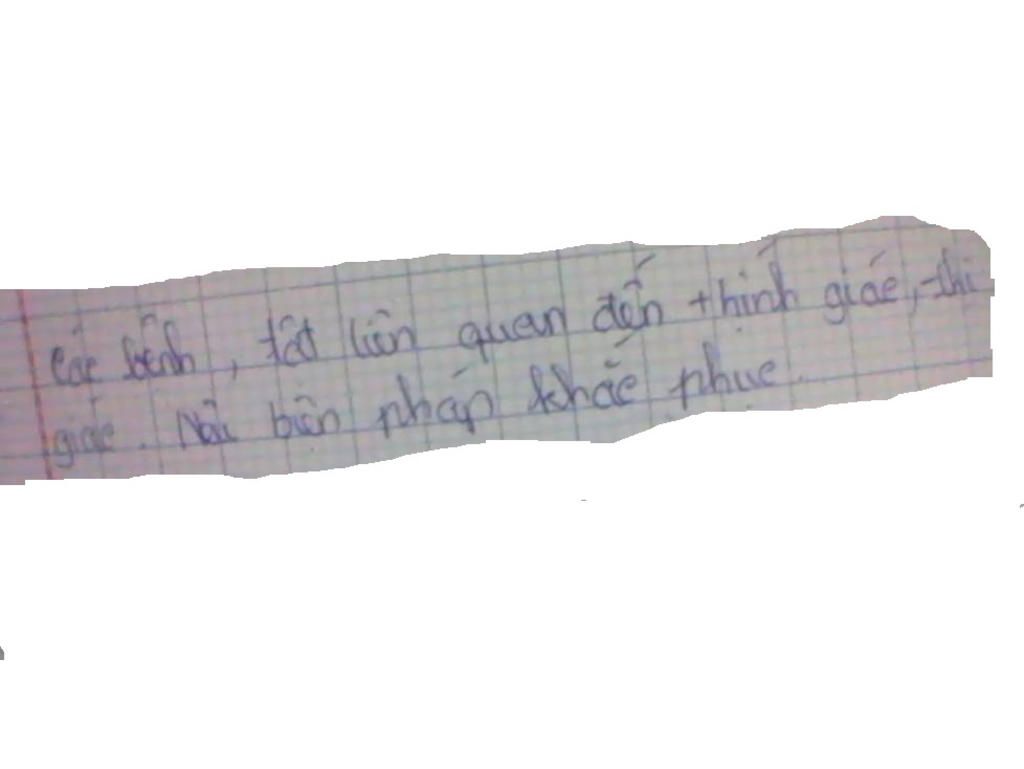 Các bệnh, tật liên quan đến thính giác, thị
giác. Nêu biện pháp khắc phục.